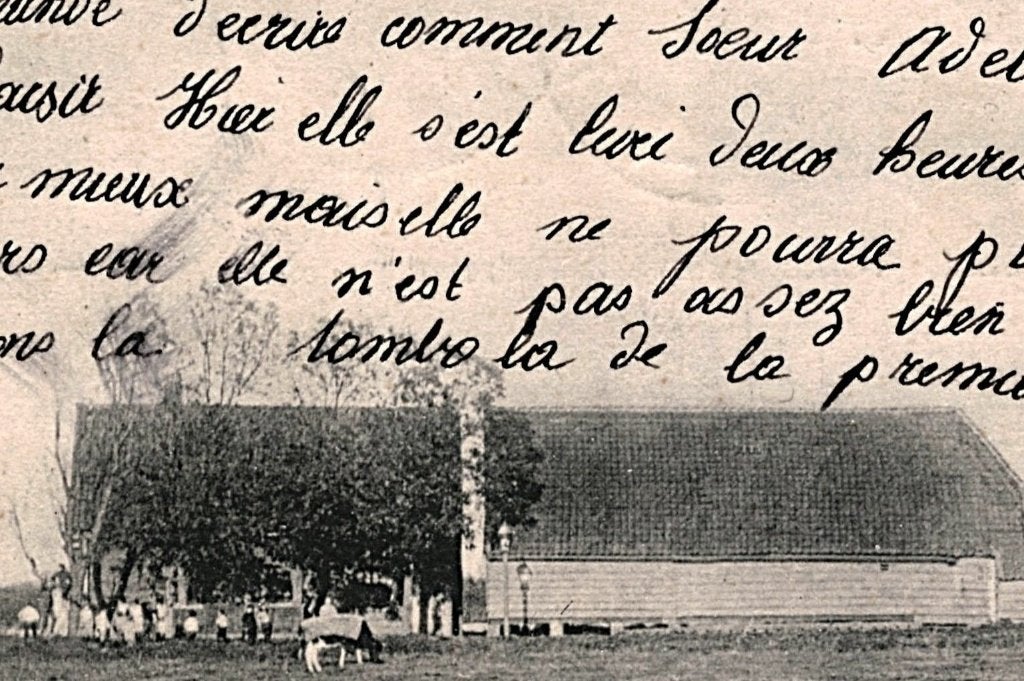 d'écrire comment Sœur Adel
Hier elle s'est levé deux heures
mieux mais elle ne pourra p
car elle n'est pas assez bien
la tombola de la premi